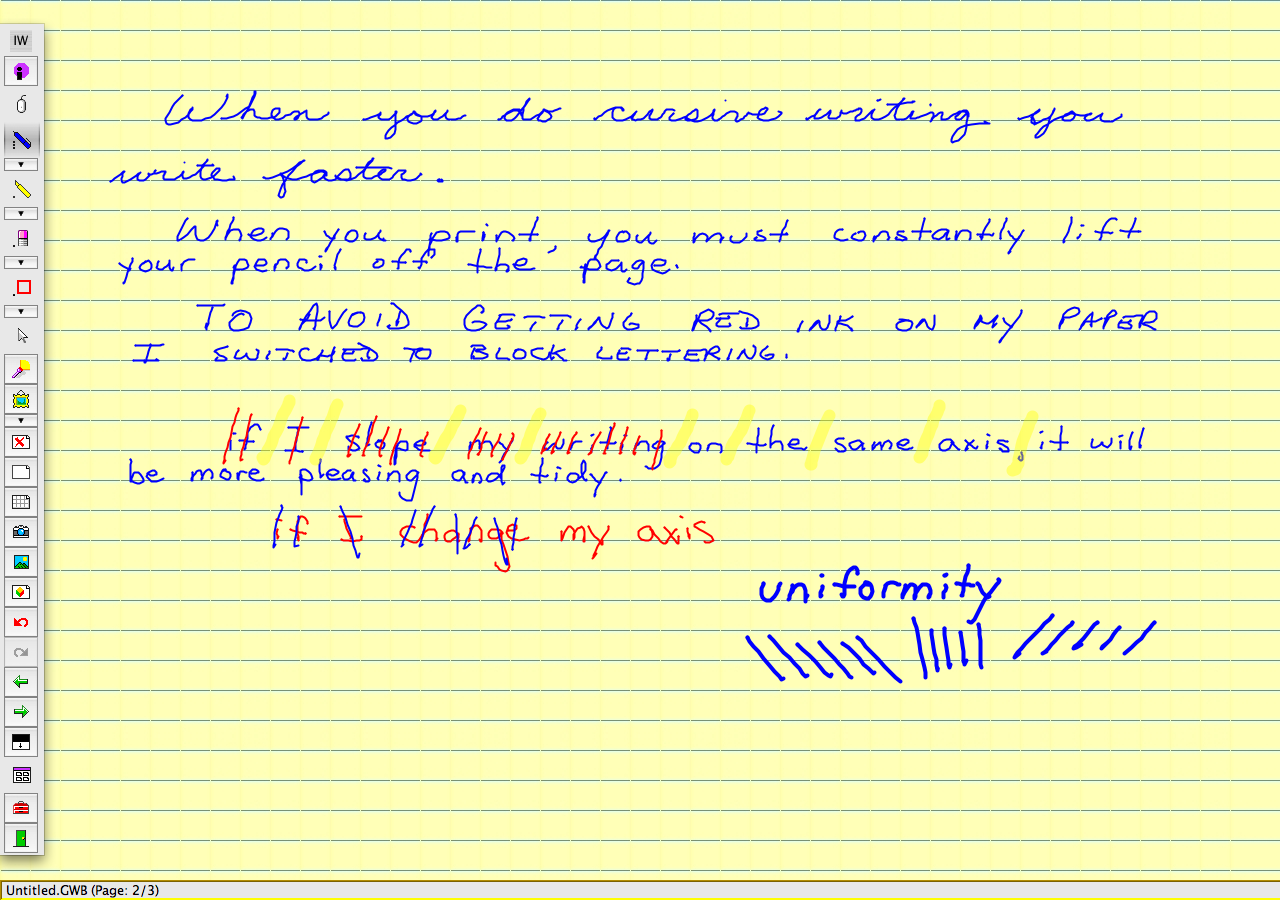 IW
When you do cursive writing you
write faster.
When you print, you must constantly lift
your pencil off the page.
TO AVOID GETTING RED INK ON MY PAPER
I SWITCHED TO BLOCK LETTERING.
if I slope my writing on the same axis, it will
be more pleasing and tidy.
if I change my axis
uniformity
Untitled.GWB (Page: 2/3)